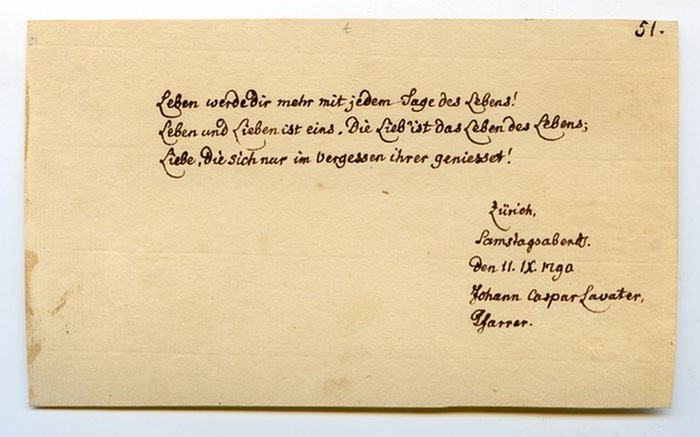 51.
Leben werde dir mehr mit jedem Tage des Lebens!
Leben und Lieben ist eins. Die Lieb' ist das Leben des Lebens;
Liebe, die sich nur im Vergessen ihrer geniesset!
Zürich,
Samstagsabends.
den 11. IX. 1790
Johann Caspar Lavater,
Pfarrer.